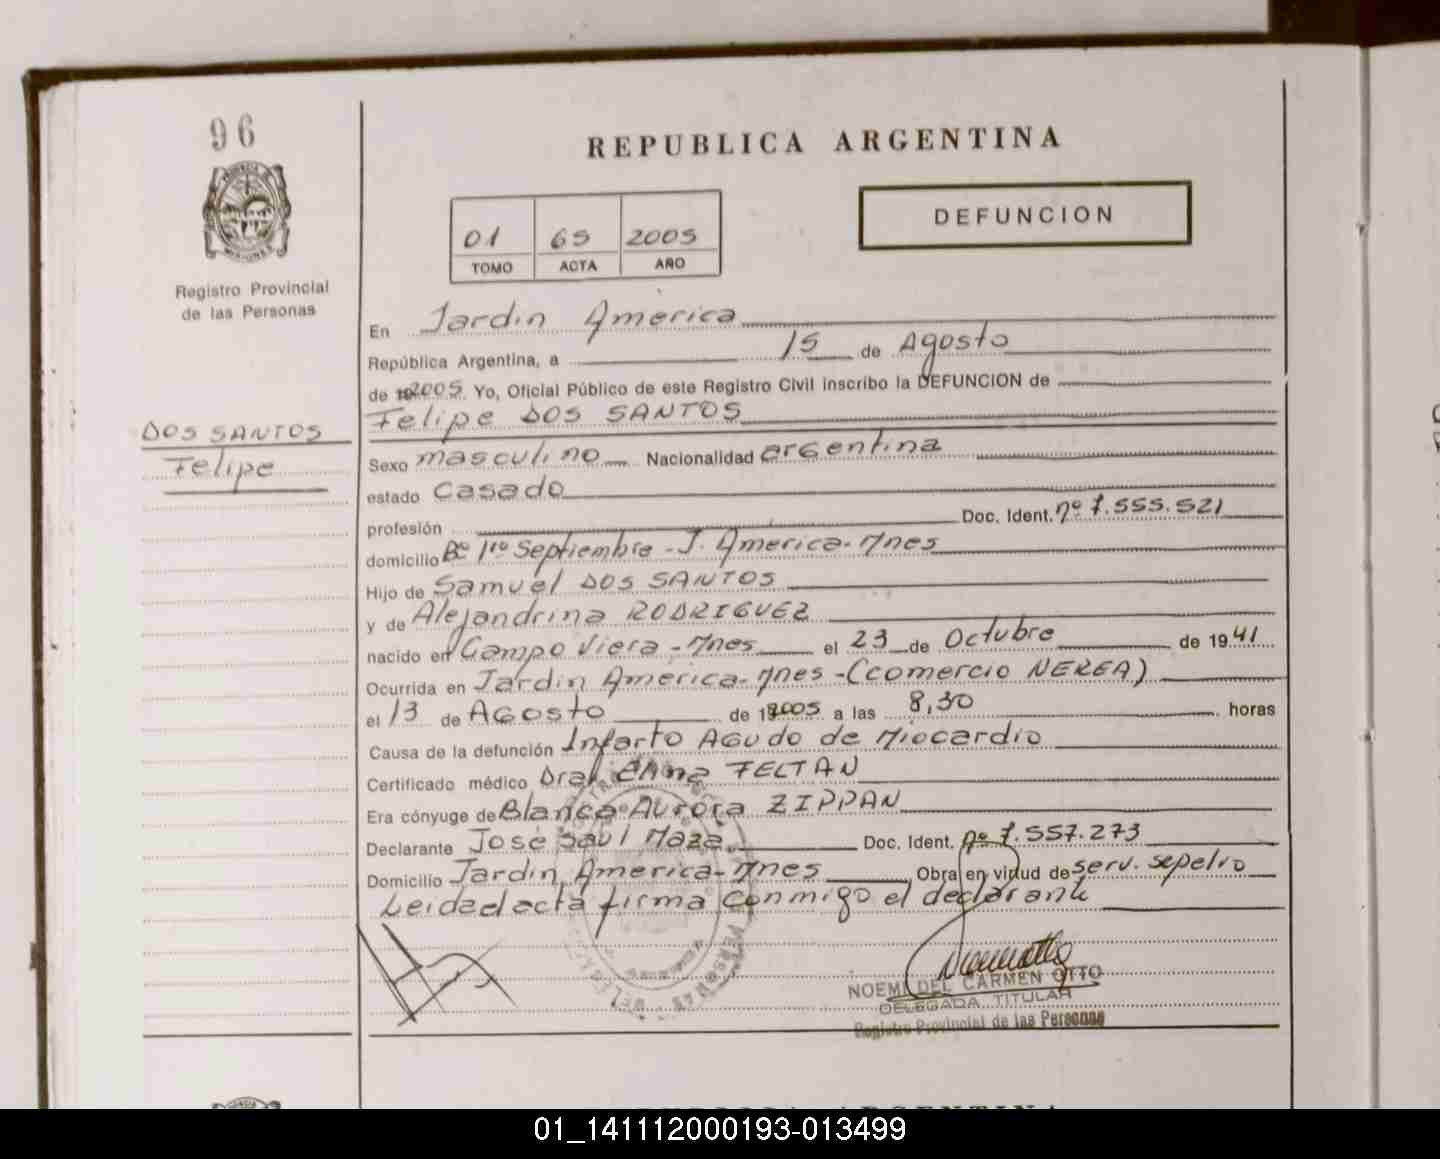 96
REPUBLICA ARGENTINA
DEFUNCION
01 65 2005
TOMO ACTA AÑO
Registro Provincial
de las Personas
DOS SANTOS
Felipe
En Jardin America
República Argentina, a 15 de Agosto
de 2005. Yo, Oficial Público de este Registro Civil inscribo la DEFUNCION de
Felipe DOS SANTOS
Sexo masculino Nacionalidad argentina
estado Casado
profesión Doc. Ident. nº 7.555.521
domicilio Bº 1ro Septiembre - J. America - Mnes
Hijo de Samuel DOS SANTOS
y de Alejandrina RODRIGUEZ
nacido en Campo Viera - Mnes el 23 de Octubre de 1941
Ocurrida en Jardin America - Mnes - (comercio NEREA)
el 13 de Agosto de 2005 a las 8,30 horas
Causa de la defunción Infarto Agudo de Miocardio
Certificado médico Dra. Elina FELTAN
Era cónyuge de Blanca Aurora ZIPPAN
Declarante José Saul Maza Doc. Ident. nº 7.557.273
Domicilio Jardin America - Mnes Obra en virtud de serv. sepelio
Leida el acta firma conmigo el declarante
NOEMI DEL CARMEN OTTO
DELEGADA TITULAR
Registro Provincial de las Personas
REPUBLICA ARGENTINA
01_141112000193-013499